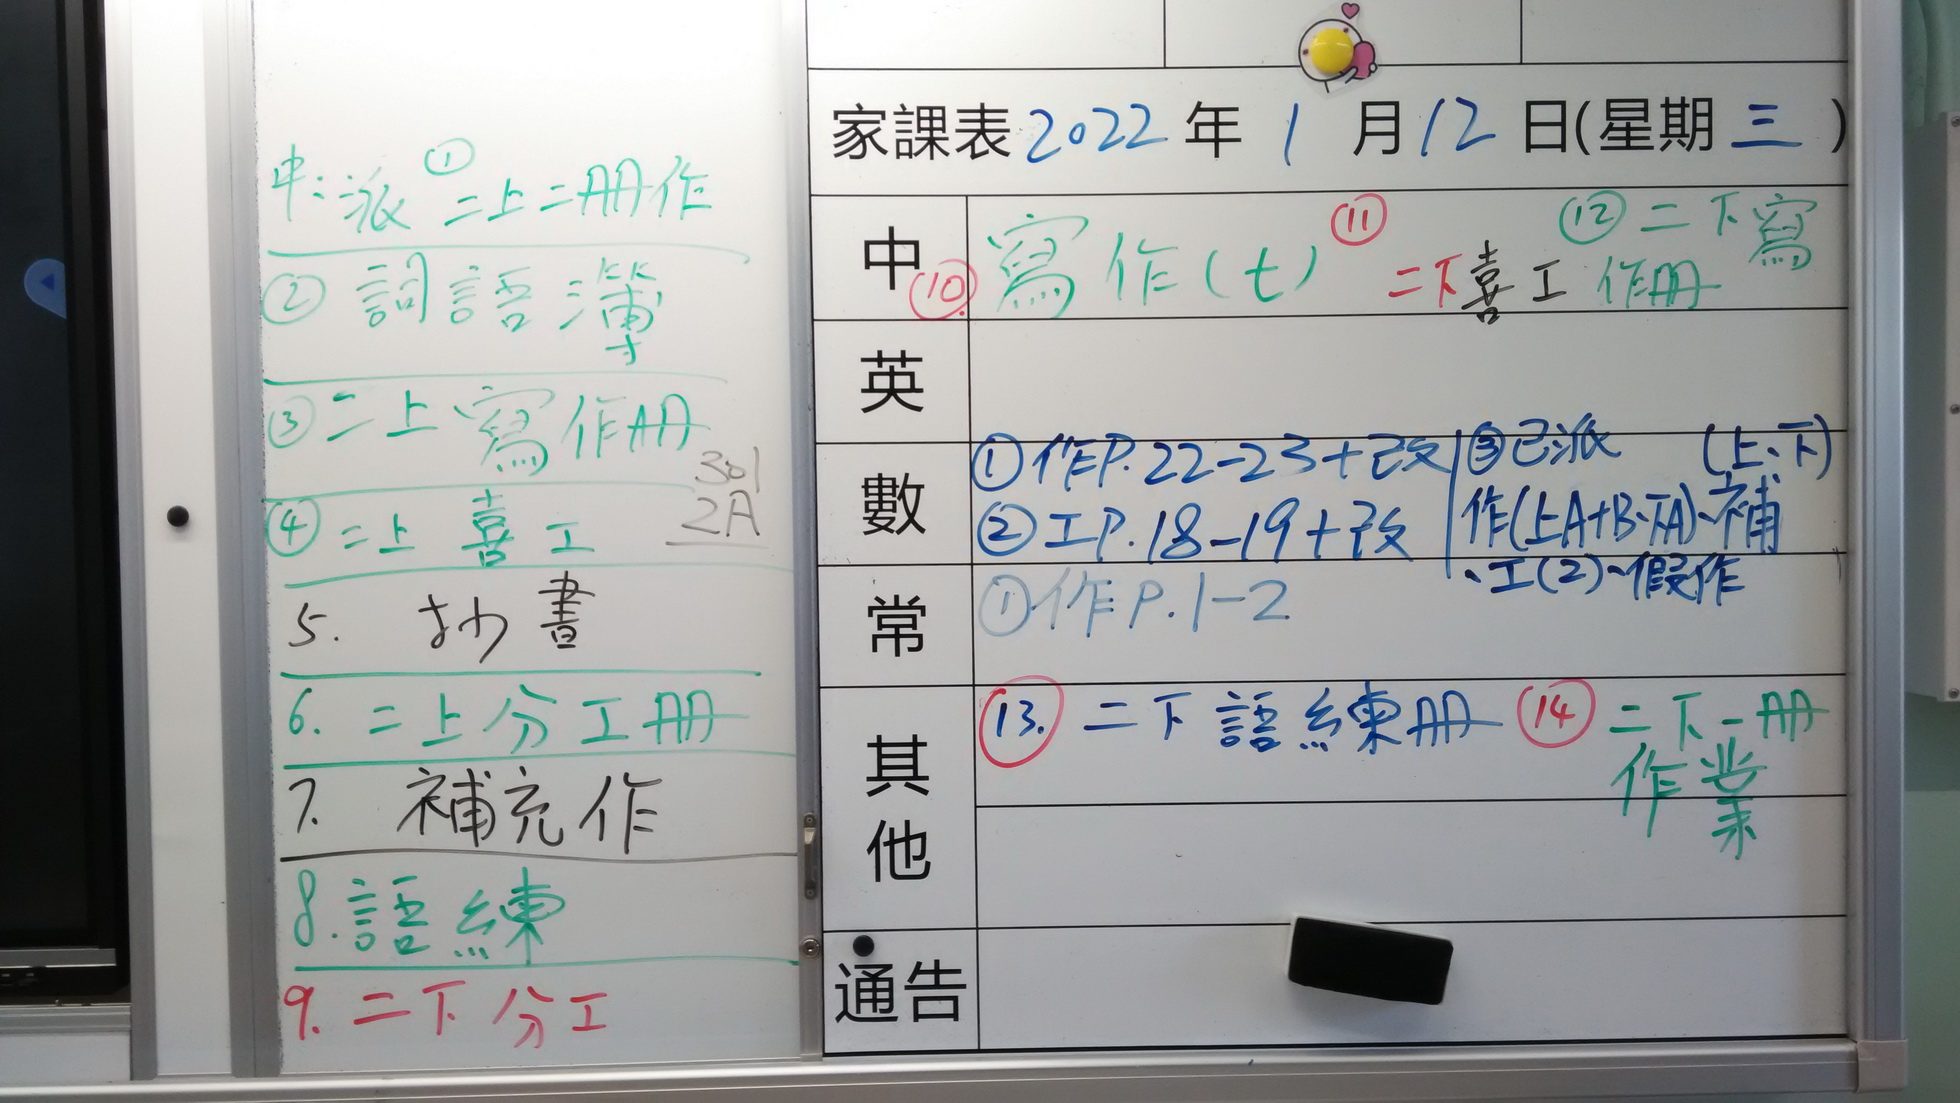 中：派 ① 二上二册作
② 詞語簿
③ 二上寫作册
④ 二上喜工
301
2A
5. 抄書
6. 二上分工册
7. 補充作
8. 語練
9. 二下分工
家課表 2022 年 1 月 12 日(星期 三 )
中 ⑩ 寫作(七) ⑪ 二下喜工 ⑫ 二下寫作册
英
數
① 作P.22-23+改
② 工P.18-19+改
③ 已派 (上、下)
作(上A+B、下A)、補
、工(2)、假作
常 ① 作P.1-2
其他
⑬ 二下語練册 ⑭ 二下一册
作業
通告